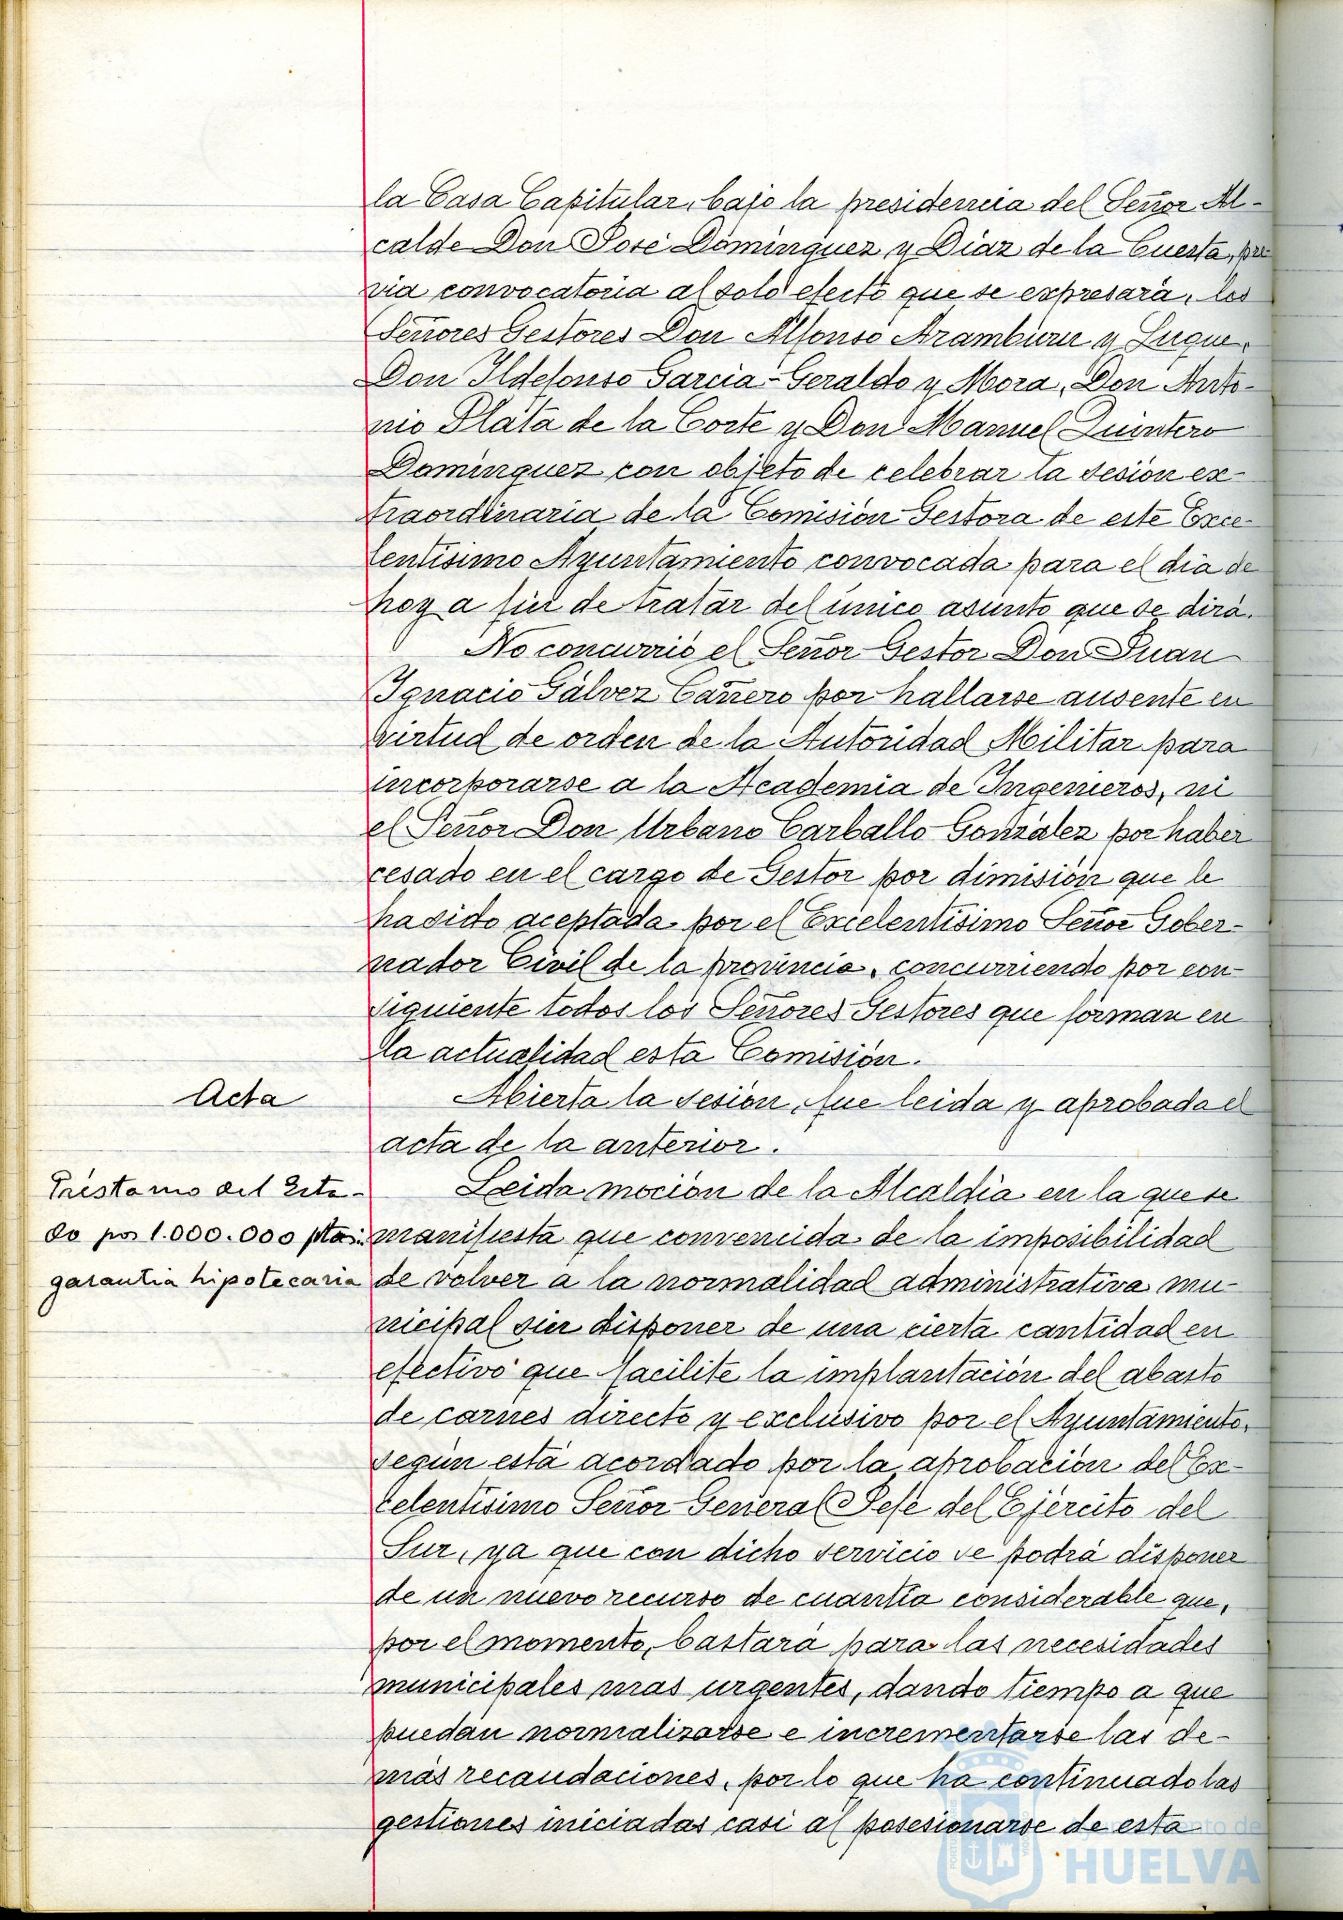 la Casa Capitular, bajo la presidencia del Señor Al-
calde Don José Domínguez y Díaz de la Cuesta, pre-
via convocatoria al solo efecto que se expresará, los
Señores Gestores Don Alfonso Aramburu y Luque,
Don Ildefonso García-Geraldo y Mora, Don Anto-
nio Plata de la Corte y Don Manuel Quintero
Domínguez con objeto de celebrar la sesión ex-
traordinaria de la Comisión Gestora de este Exce-
lentísimo Ayuntamiento convocada para el día de
hoy a fin de tratar del único asunto que se dirá.
No concurrió el Señor Gestor Don Juan
Ignacio Gálvez Cañero por hallarse ausente en
virtud de orden de la Autoridad Militar para
incorporarse a la Academia de Ingenieros, ni
el Señor Don Urbano Carballo González por haber
cesado en el cargo de Gestor por dimisión que le
ha sido aceptada por el Excelentísimo Señor Gober-
nador Civil de la provincia, concurriendo por con-
siguiente todos los Señores Gestores que forman en
la actualidad esta Comisión.
Acta
Abierta la sesión, fue leida y aprobada el
acta de la anterior.
Préstamo del Esta-
do por 1.000.000 ptas.
garantia hipotecaria
Leida moción de la Alcaldía en la que se
manifiesta que convencida de la imposibilidad
de volver a la normalidad administrativa mu-
nicipal sin disponer de una cierta cantidad en
efectivo que facilite la implantación del abasto
de carnes directo y exclusivo por el Ayuntamiento,
según está acordado por la aprobación del Ex-
celentísimo Señor General Jefe del Ejército del
Sur, ya que con dicho servicio se podrá disponer
de un nuevo recurso de cuantía considerable que,
por el momento, bastará para las necesidades
municipales mas urgentes, dando tiempo a que
puedan normalizarse e incrementarse las de-
más recaudaciones, por lo que ha continuado las
gestiones iniciadas casi al posesionarse de esta
Ayuntamiento de
HUELVA